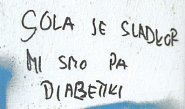 ŠOLA JE SLADKOR
MI SMO PA
DIABETIKI